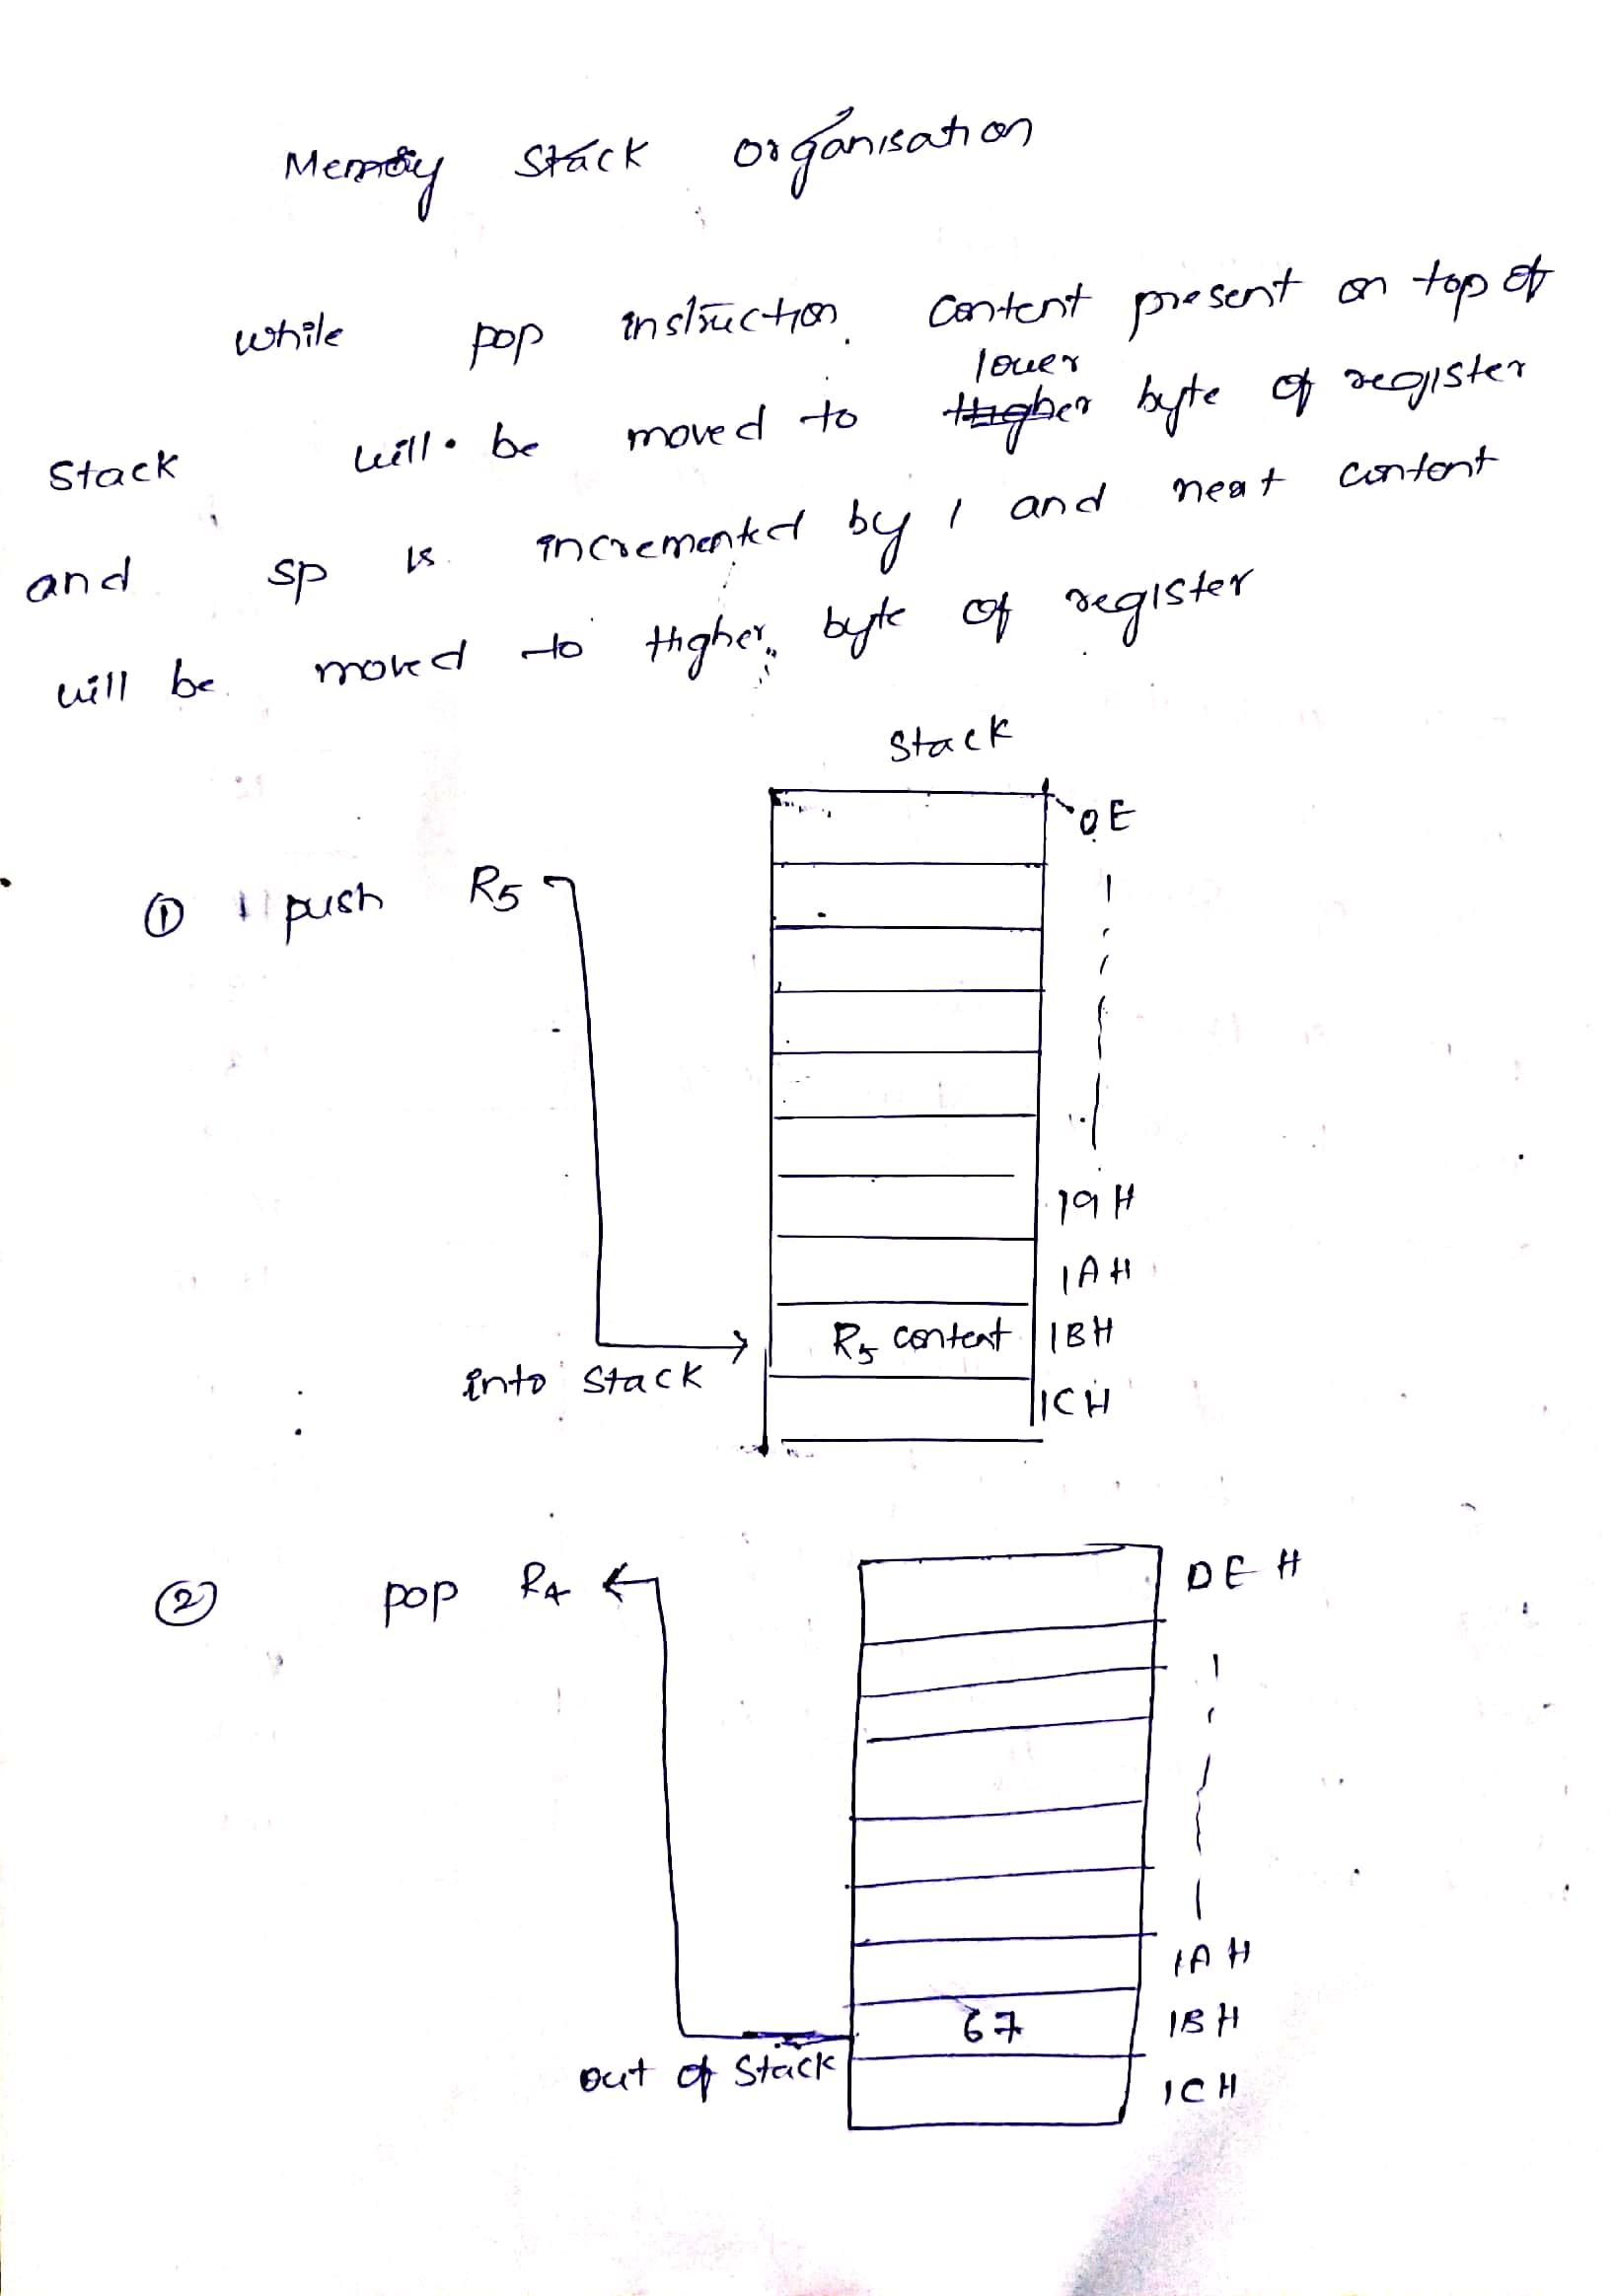 Memory Stack organisation
while pop instruction content present on top of
lower
Stack will be moved to Higher byte of register
and sp is incremented by 1 and next content
will be moved to Higher byte of register
Stack
0E
① push R5
19H
1AH
R5 content 1BH
into Stack
1CH
② pop R4
DEH
1AH
67 1BH
out of Stack
1CH